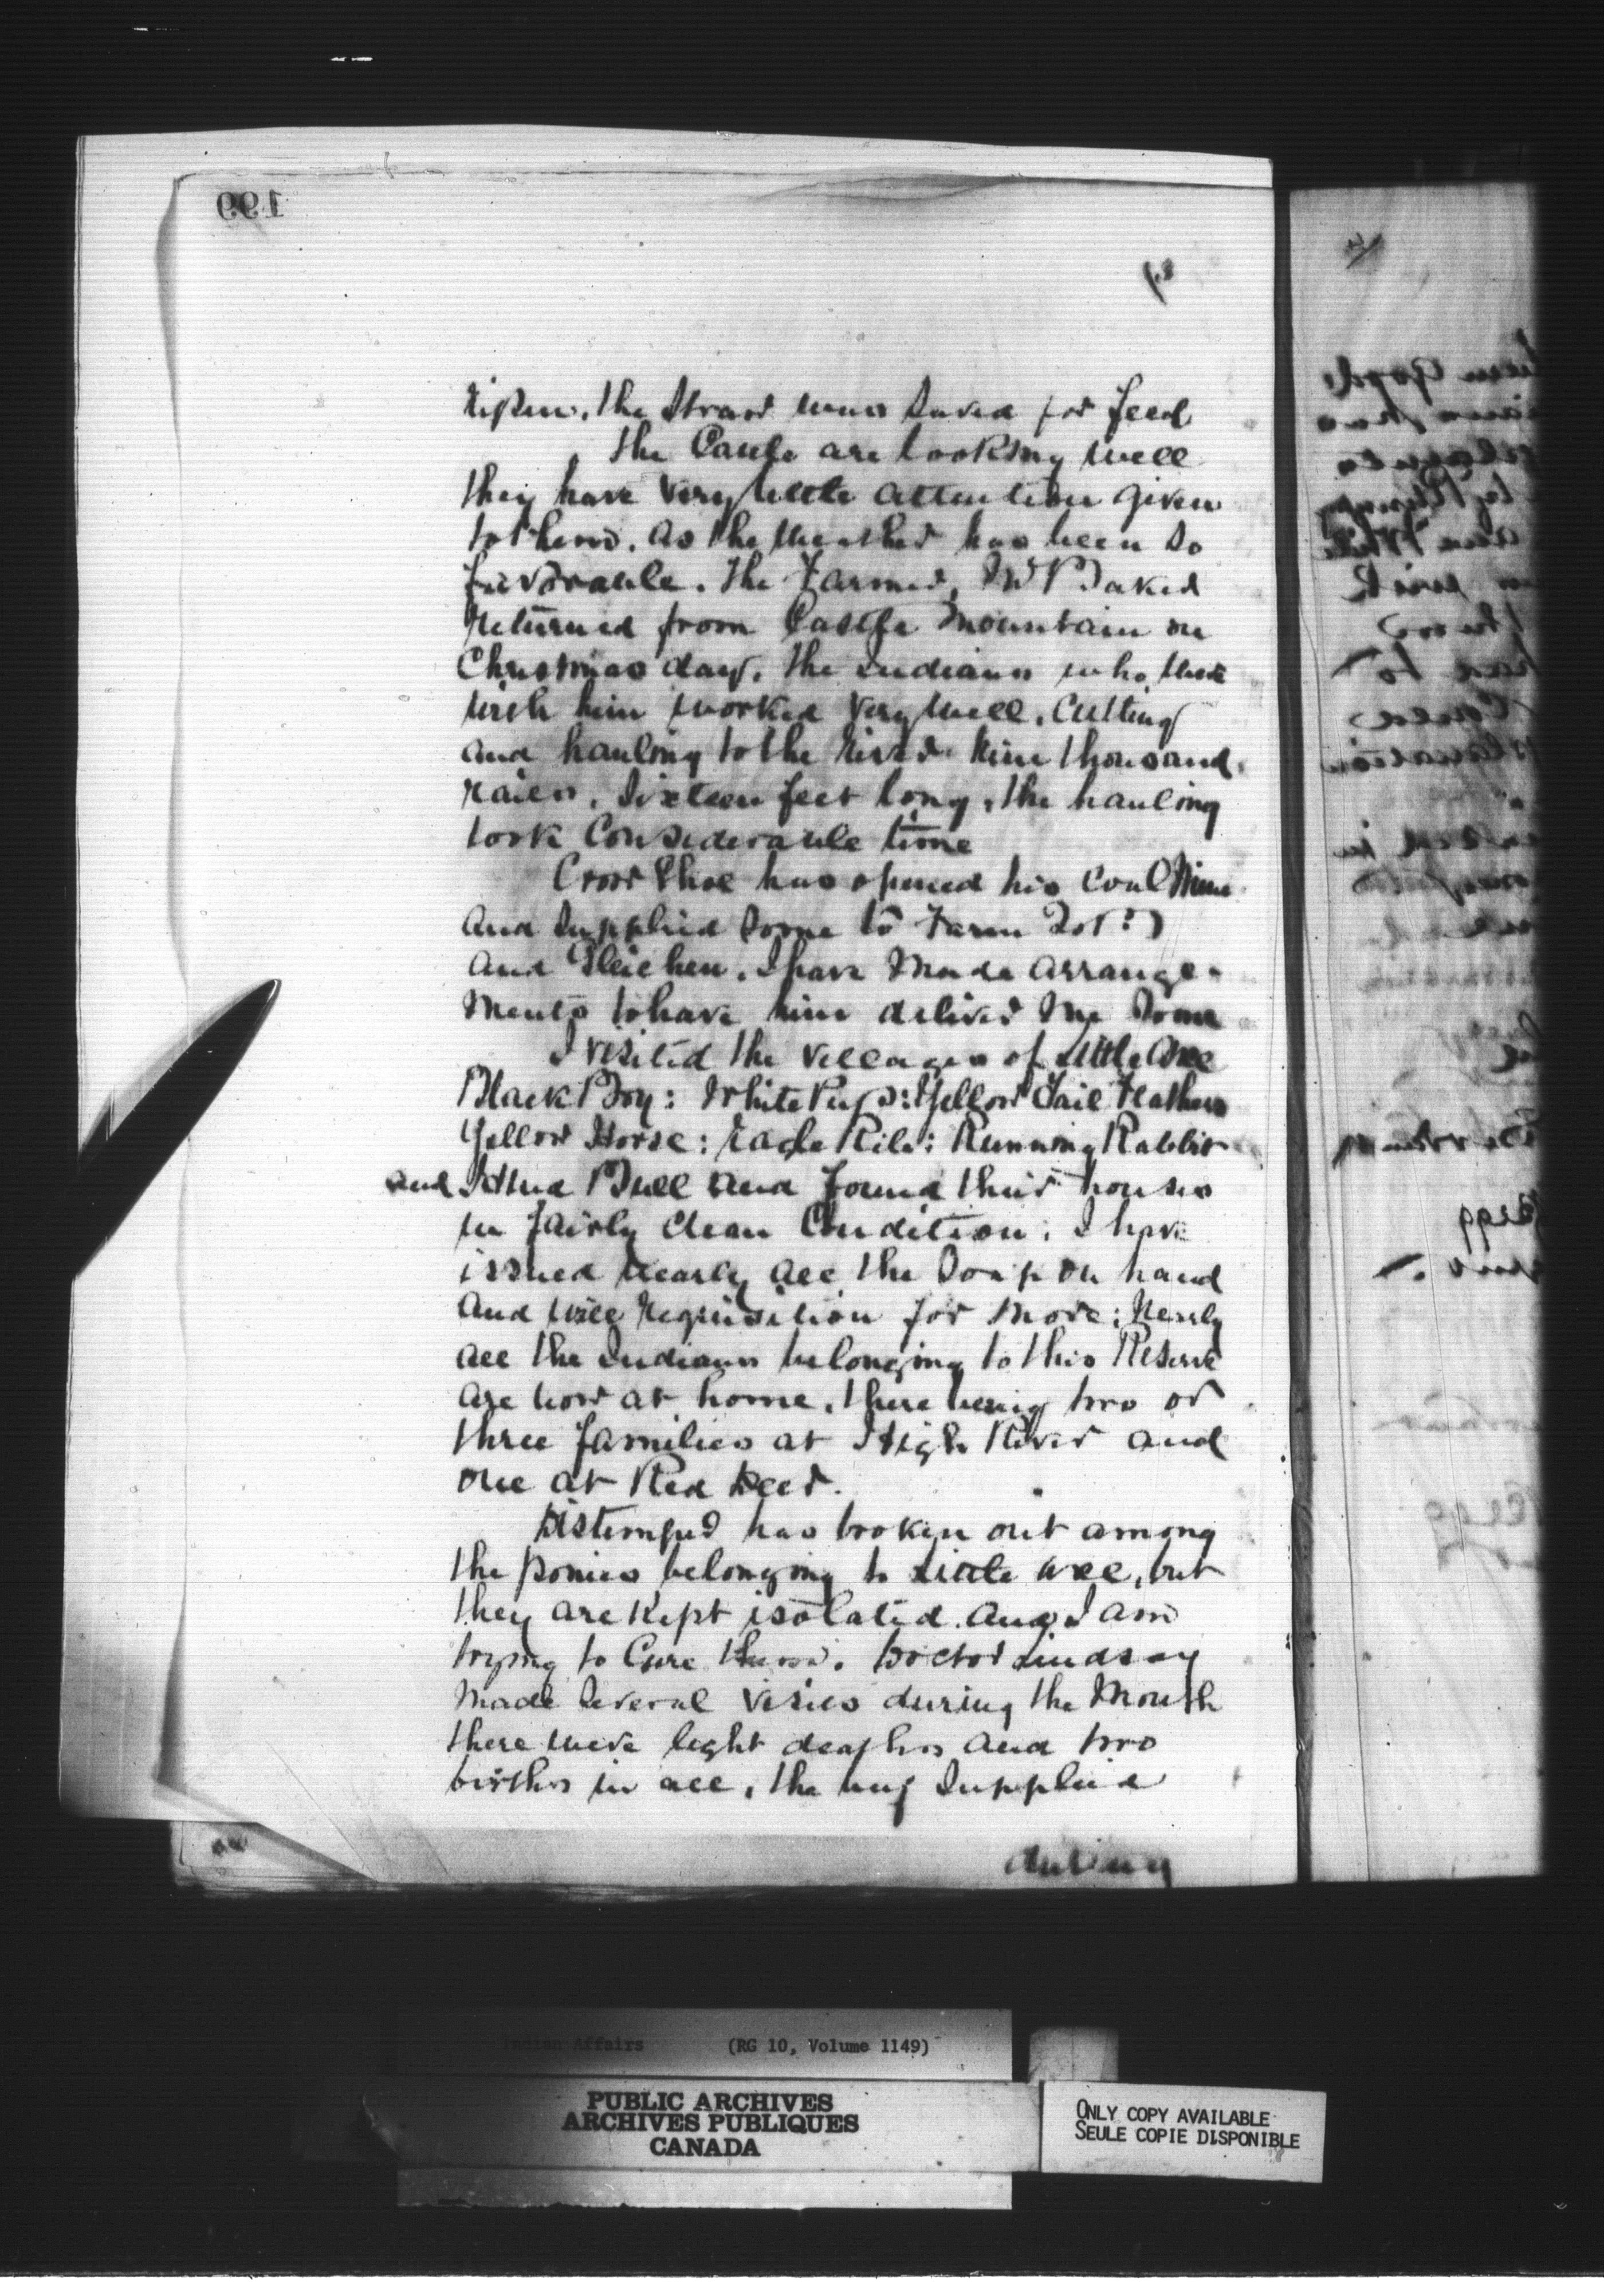 199
3/
ripen. the Straw was Saved for feed
The Cattle are looking well
they have very little attention given
to them. as the weather has been So
favorable. The Farmer, Mr Baker
returned from Castle Mountain on
Christmas day. the Indians who were
with him worked very well. Cutting
and hauling to the River nine thousand
rails. Sixteen feet long, the hauling
took Considerable time
Crow Shoe has opened his Coal Mine
and Supplied Some to Farm
and Gleichen. I have Made arrange-
ments to have him deliver Me Some
I visited the villages of Little Axe
Black Boy: White Pup: Yellow Tail Feathers
Yellow Horse: Eagle Rib: Running Rabbit
and Bull and found their houses
in fairly clean Condition. I have
issued nearly all the Soap on hand
and will requisition for More: Nearly
all the Indians belonging to this Reserve
are now at home. there being two or
three families at High River and
one at Red Deer.
Distemper has broken out among
the ponies belonging to Little Axe, but
they are kept isolated. and I am
trying to Cure them. Doctor Lindsay
Made Several visits during the Month
there were eight deaths and two
births in all. the Supplied
during
Indian Affairs (RG 10, Volume 1149)
PUBLIC ARCHIVES
ARCHIVES PUBLIQUES
CANADA
ONLY COPY AVAILABLE
SEULE COPIE DISPONIBLE